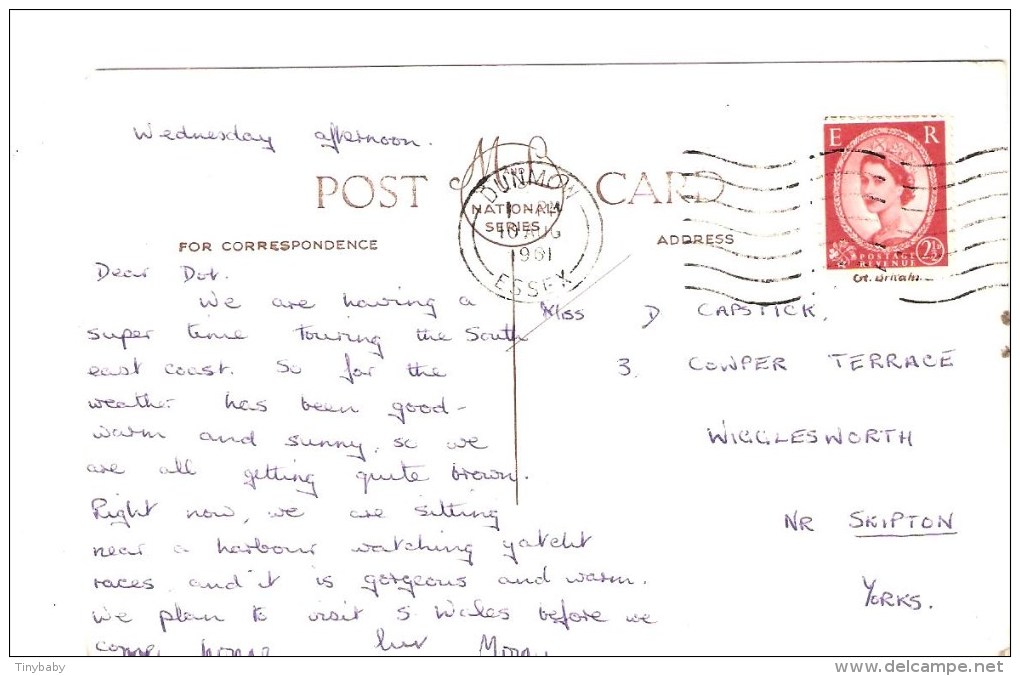 Wednesday afternoon.
POST CARD
NATIONAL
SERIES
FOR CORRESPONDENCE
ADDRESS
DUNMOW
10 AUG
1961
ESSEX
E R
POSTAGE
REVENUE
2½D
Gt. Britain
Dear Dot.
We are having a
super time touring the South
east coast. So far the
weather has been good-
warm and sunny, so we
are all getting quite brown.
Right now, we are sitting
near a harbour watching yatcht
races and it is gorgeous and warm.
We plan to visit S Wales before we
come home luv
Miss D CAPSTICK,
3. COWPER TERRACE
WIGGLESWORTH
NR SKIPTON
YORKS.
Tinybaby
www.delcampe.net